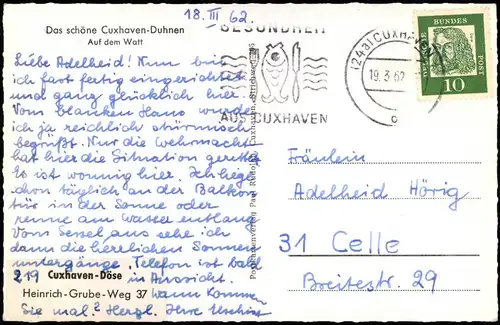 18. III 62.
Das schöne Cuxhaven-Duhnen
Auf dem Watt
Liebe Adelheid! Nun bin
ich fast fertig eingerichtet
und ganz glücklich hier.
Vom blanken Hans wurde
ich ja reichlich stürmisch
begrüßt. Nur die Wehrmacht
hat hier die Situation gerettet
Es ist wonnig hier. Ich liege
schon täglich an der Balkon
tür in der Sonne oder
renne am Wasser entlang
Vom Sessel aus sehe ich
dann die herrlichen Sonnen
untergänge. Telefon ist bald
219 Cuxhaven-Döse in Aussicht.
Heinrich-Grube-Weg 37 Wann kommen
Sie mal? Herzl. Ihre
GESUNDHEIT
AUS CUXHAVEN
(24a) CUXHAVEN
19.3.62
DEUTSCHE BUNDESPOST
10
Fräulein
Adelheid Hörig
31 Celle
Breitestr. 29